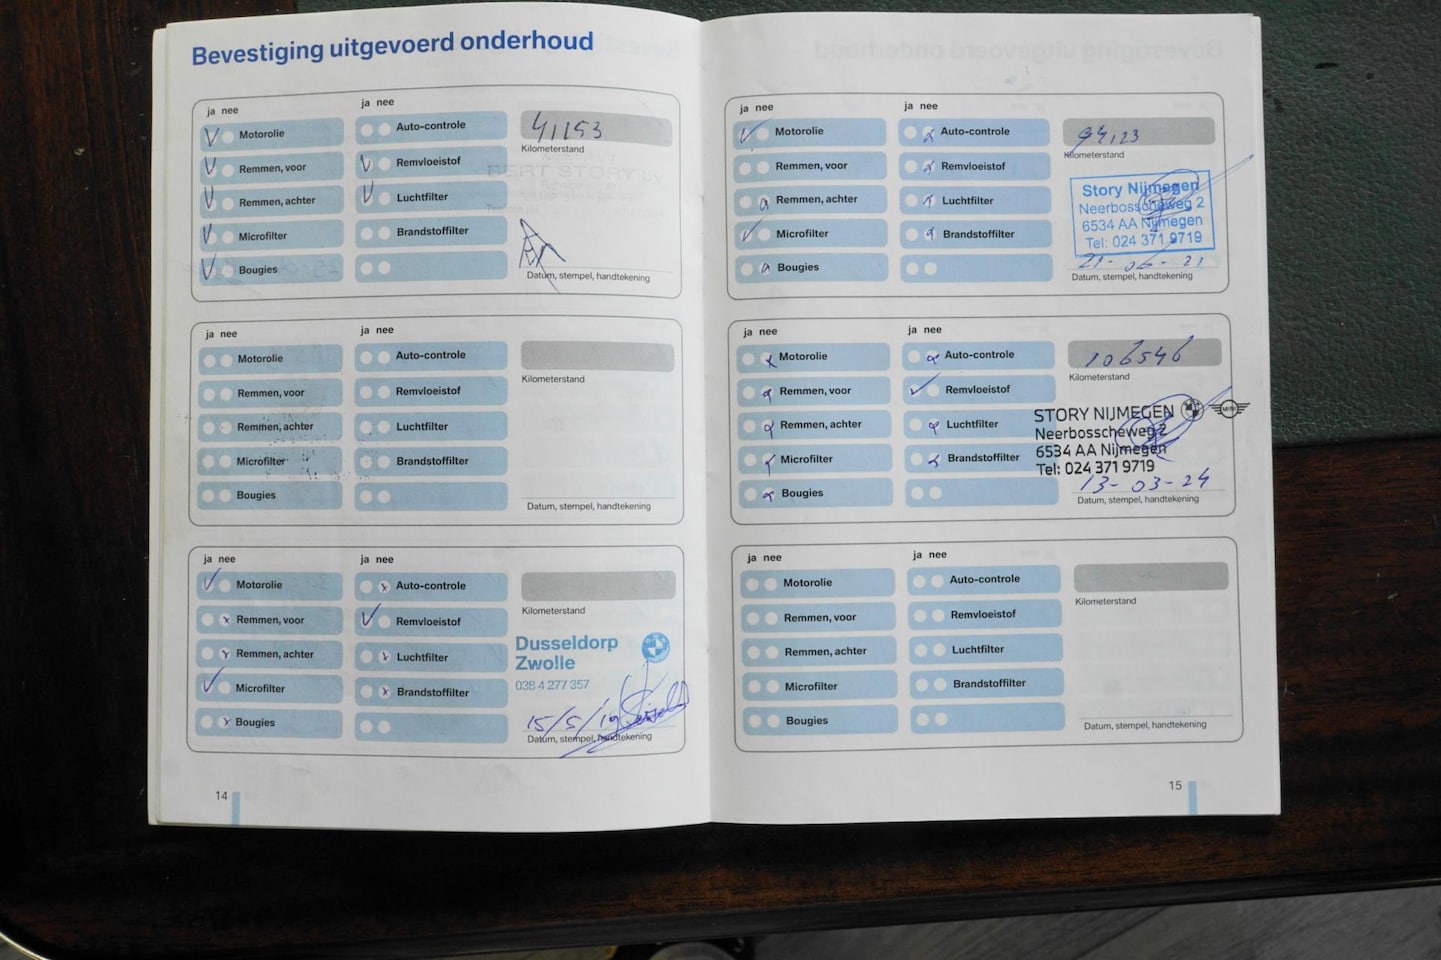 Bevestiging uitgevoerd onderhoud
ja nee
ja nee
Motorolie
Auto-controle
41153
Kilometerstand
Remmen, voor
Remvloeistof
Remmen, achter
Luchtfilter
Microfilter
Brandstoffilter
Bougies
Datum, stempel, handtekening
ja nee
ja nee
Motorolie
Auto-controle
Kilometerstand
Remmen, voor
Remvloeistof
Remmen, achter
Luchtfilter
Microfilter
Brandstoffilter
Bougies
Datum, stempel, handtekening
ja nee
ja nee
Motorolie
Auto-controle
Kilometerstand
Remmen, voor
Remvloeistof
Remmen, achter
Luchtfilter
Microfilter
Brandstoffilter
Bougies
Dusseldorp
Zwolle
038 4 277 357
15/5/19
Datum, stempel, handtekening
14
ja nee
ja nee
Motorolie
Auto-controle
94123
Kilometerstand
Remmen, voor
Remvloeistof
Remmen, achter
Luchtfilter
Microfilter
Brandstoffilter
Bougies
Story Nijmegen
Neerbosscheweg 2
6534 AA Nijmegen
Tel: 024 371 9719
21-06-21
Datum, stempel, handtekening
ja nee
ja nee
Motorolie
Auto-controle
106546
Kilometerstand
Remmen, voor
Remvloeistof
Remmen, achter
Luchtfilter
Microfilter
Brandstoffilter
Bougies
STORY NIJMEGEN
MINI
Neerbosscheweg 2
6534 AA Nijmegen
Tel: 024 371 9719
13-03-24
Datum, stempel, handtekening
ja nee
ja nee
Motorolie
Auto-controle
Kilometerstand
Remmen, voor
Remvloeistof
Remmen, achter
Luchtfilter
Microfilter
Brandstoffilter
Bougies
Datum, stempel, handtekening
15